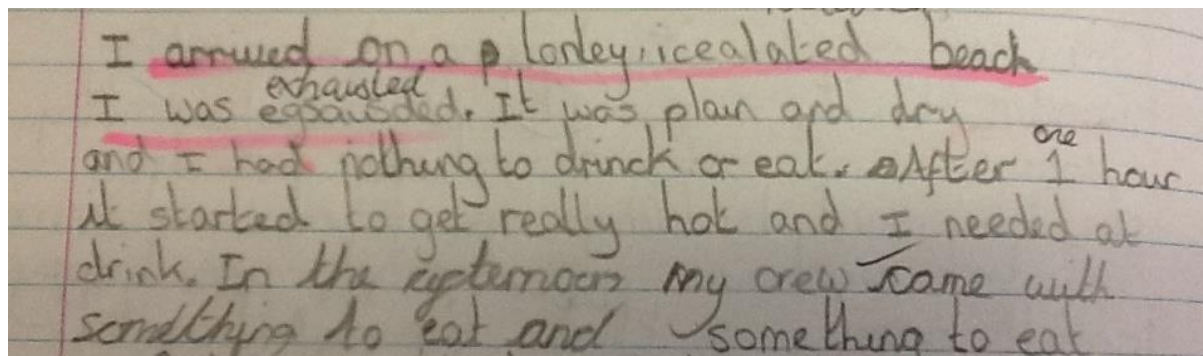 I arrived on a lonley, icealated beach
exhausted
I was egsausded. It was plain and dry
one
and I had nothing to drinck or eat. After 1 hour
it started to get really hot and I needed at
drink. In the afternoon my crew came with
somdthing to eat and something to eat